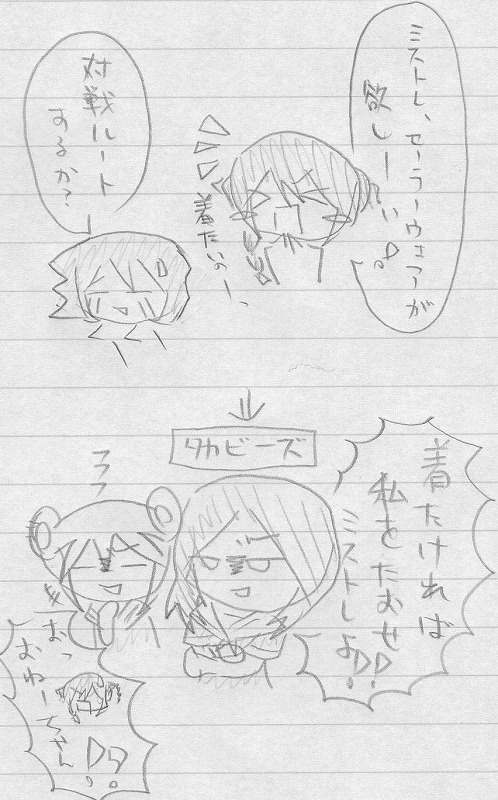 ミストレ、セーラーウェアが
欲しーい!
着たいのーっ
対戦ルート
するか?
↓
タカビーズ
着たければ
私をたおせ
ミストレよ!!
おっ
おねーちゃん